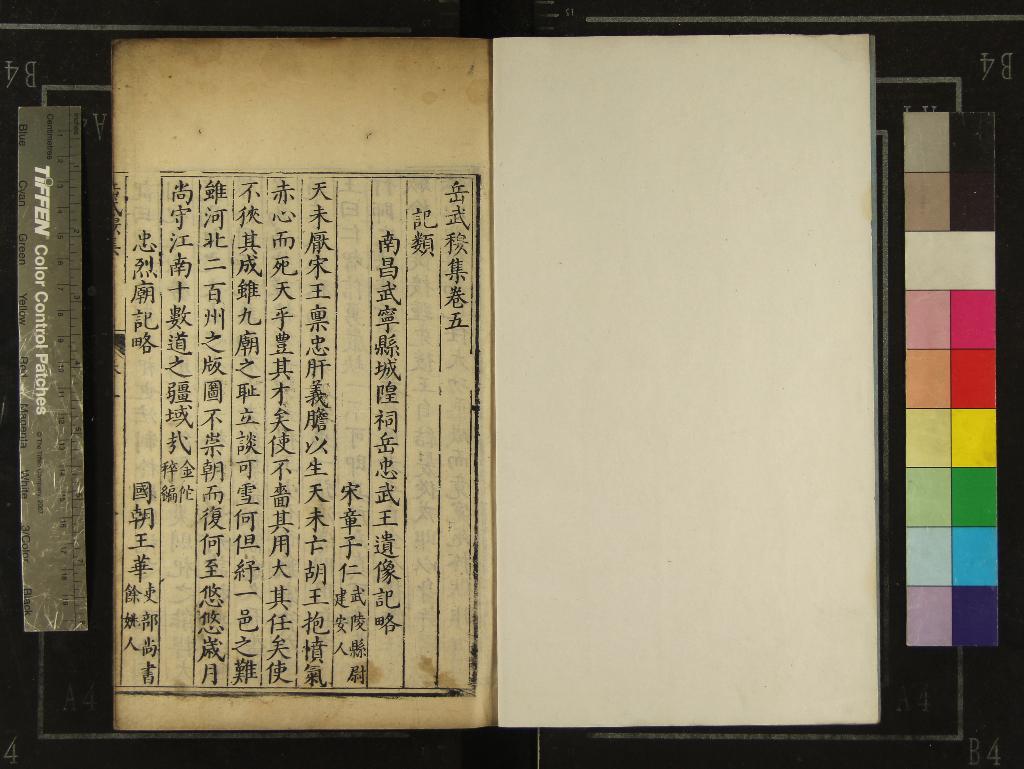 岳武穆集卷五
記類
南昌武寧縣城隍祠岳忠武王遺像記略
宋章子仁武陵縣尉建安人
天未厭宋王禀忠肝義膽以生天未亡胡王抱憤氣
赤心而死天乎豊其才矣使不嗇其用大其任矣使
不俠其成雖九廟之耻立談可雪何但紓一邑之難
雖河北二百州之版圖不祟朝而復何至悠悠歲月
尚守江南十數道之疆域㢤金佗稡編
忠烈廟記略
國朝王華吏部尚書餘姚人
TIFFEN Color Control Patches
© The Tiffen Company, 2007
Centimetres
Inches
Blue
Cyan
Green
Yellow
Red
Magenta
White
3/Color
Black
B4
A4
B4
A4
A4
4
B4